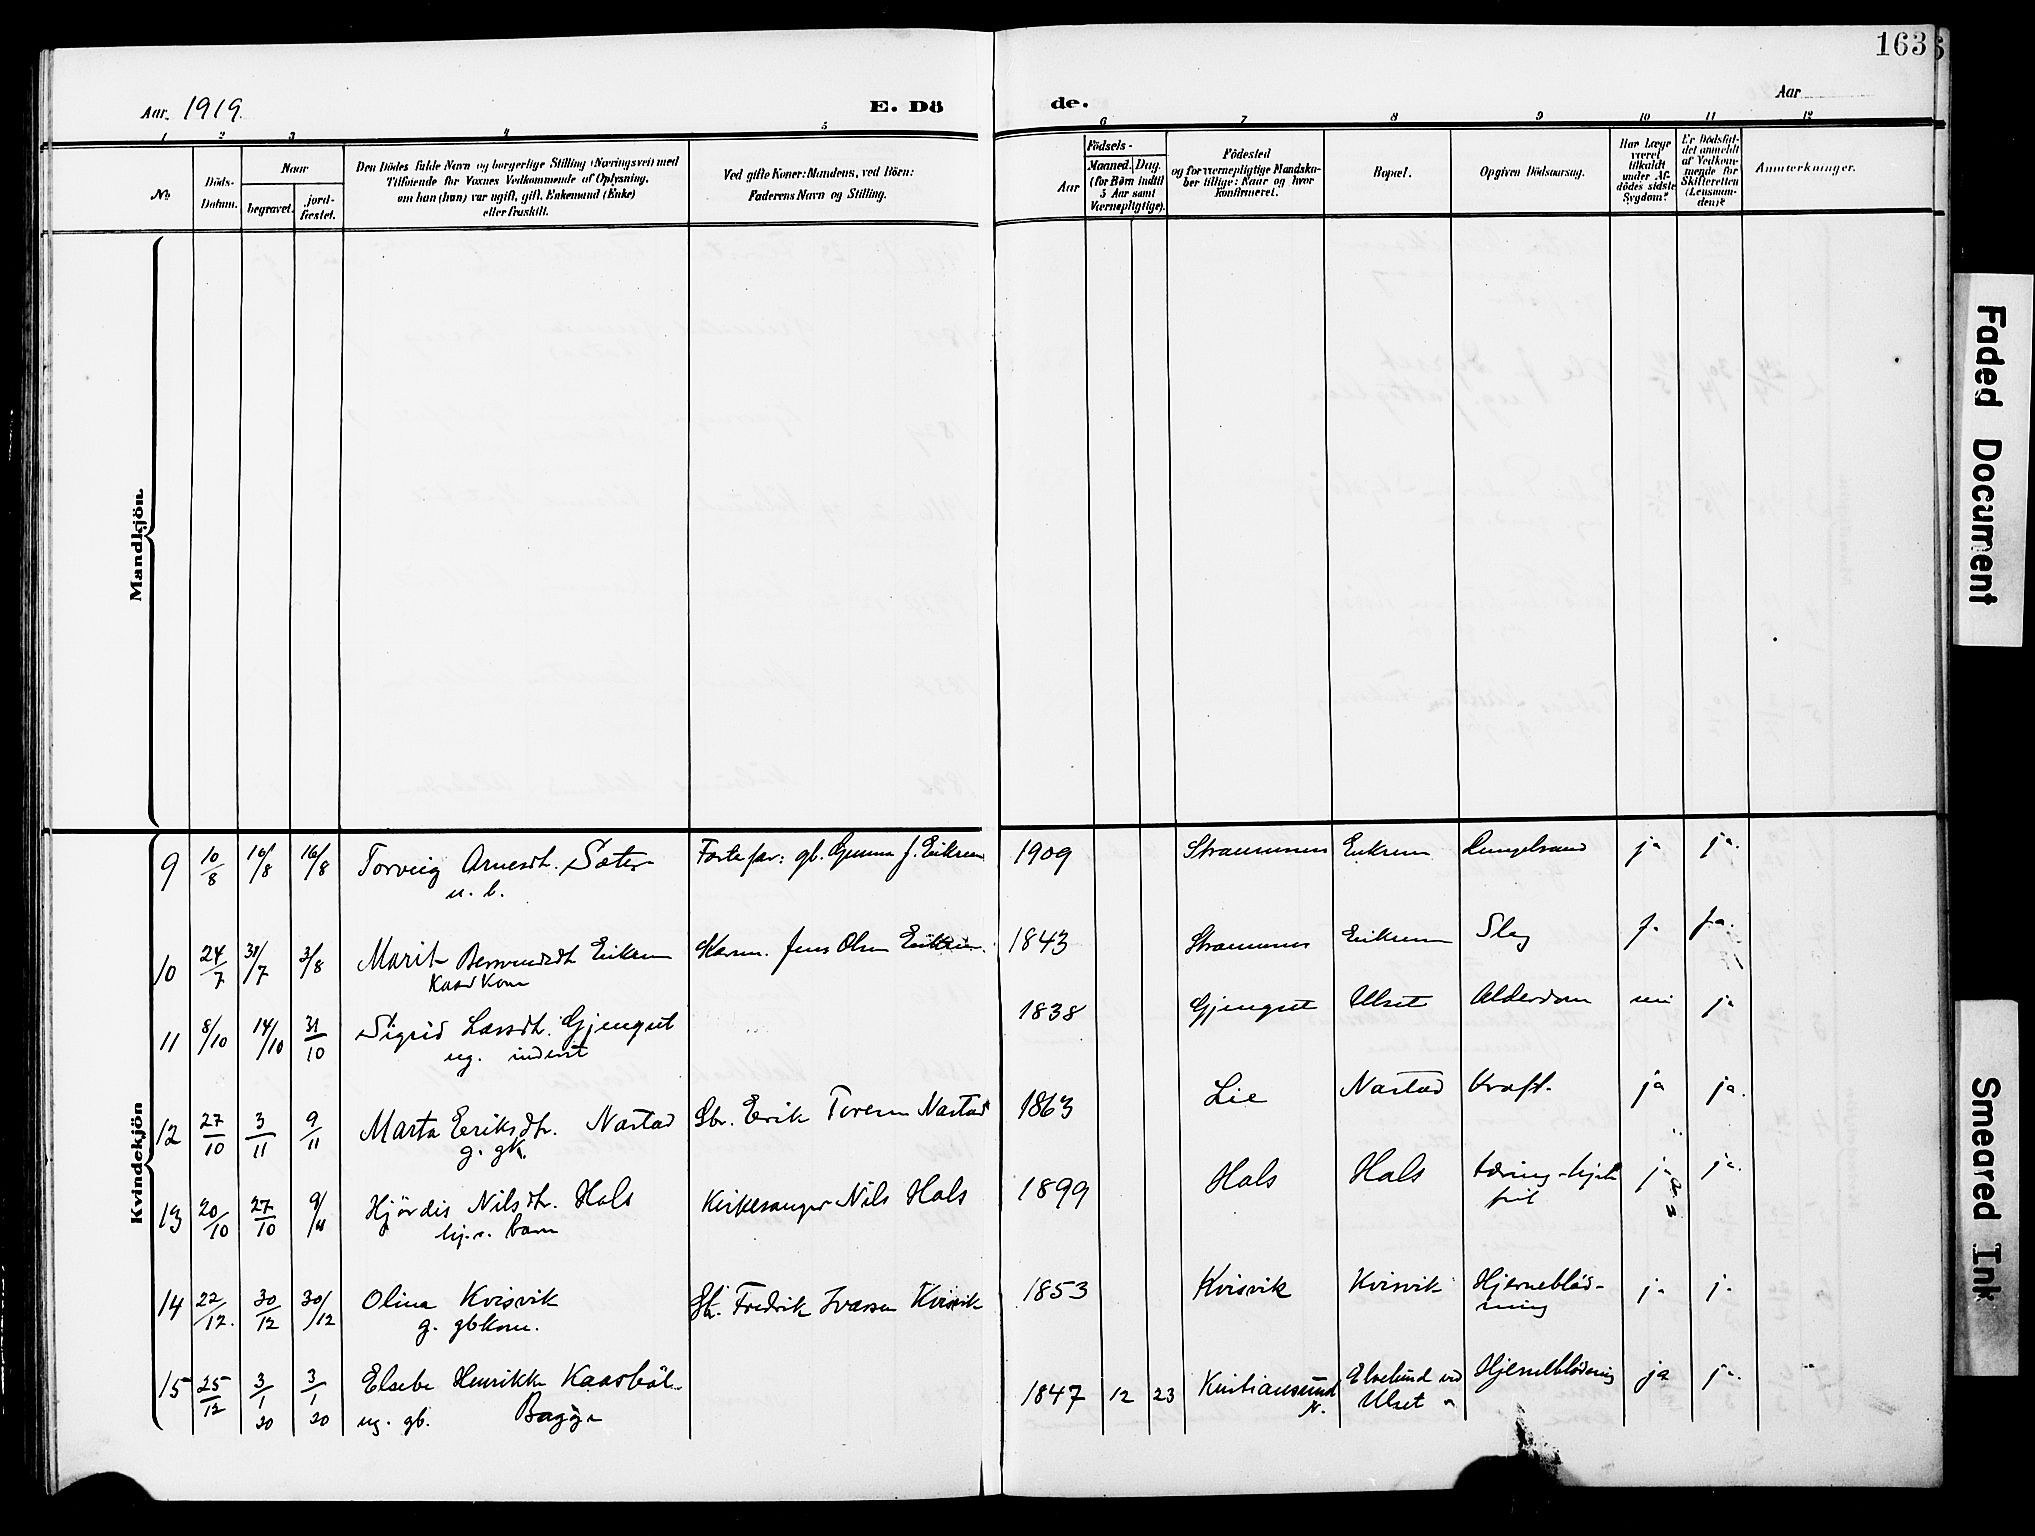 163
Aar 1919.
E. Dö
de.
Aar
1 2 3 4 5 6 7 8 9 10 11 12
No.
Döds-
Datum.
Naar
begravet.
jord-
fæstet.
Den Dödes fulde Navn og borgerlige Stilling (Næringsvei) med
Tilföiende for Voxnes Vedkommende af Oplysning,
om han (hun) var ugift, gift, Enkemand (Enke)
eller fraskilt.
Ved gifte Koner: Mandens, ved Börn:
Faderens Navn og Stilling.
Födsels-
Aar
Maaned. Dag.
(for Börn indtil
5 Aar samt
Værnepligtige).
Födested
og for værnepligtige Mandska-
ber tillige: Naar og hvor
konfirmeret.
Bopæl.
Opgiven Dödsaarsag.
Har Læge
været
tilkaldt
under Af-
dödes sidste
Sygdom?
Er Dödsfal-
det anmeldt
af Vedkom-
mende for
Skifteretten
(Lensman-
den)?
Anmærkninger.
Mandkjön.
Kvindekjön
9 10/8 16/8 16/8 Torveig Arnesdt. Sæter Fosterfar: gb. Gunnar J. Eikrem 1909 Straumsnes Eikrem ja ja.
u. b.
10 24/7 30/7 3/8 Marit Eikrem Kaarm. Jens Olsen Eikrem. 1843 Straumsnes Eikrem Slag j. ja.
Kaardkone
11 8/10 14/10 31/10 Sigrid Larsdt. Gjengset 1838 Gjengset Ulset Alderdom nei ja
ug. inderst
12 27/10 3/11 9/11 Marta Eriksdt. Nastad Gbr. Erik Toresen Nastad 1863 Lie Nastad Kræft. ja ja.
g. gk.
13 20/10 27/10 9/11 Hjördis Nilsdt. Hals Kirkesanger Nils Hals 1899 Hals Hals ja ja.
hj.v. barn
14 22/12. 30/12 30/12 Olina Kvisvik Gb. Fredrik Iversen Kvisvik 1853 Kvisvik Kvisvik Hjerneblöd- j. j.
g. gbkone. ning
15 25/12 3/1 20 3/1 20 Elsebe Henrikke Kaasböl- 1847 12 23 Kristiansund Elvelund ved Hjerneblödning ja ja.
ug. gb. Bagge N. Ulset
Faded Document
Smeared Ink